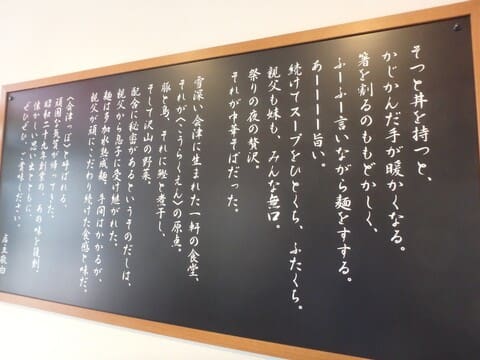 そっと丼を持つと、
かじかんだ手が暖かくなる。
箸を割るのももどかしく、
ふーふー言いながら麺をすする。
あーーーー旨い。
続けてスープをひとくち、ふたくち。
親父も妹も、みんな無口。
祭りの夜の贅沢。
それが中華そばだった。
雪深い会津に生まれた一軒の食堂、
それが〈こうらくえん〉の原点。
豚と鳥、それに鰹と煮干し、
そして沢山の野菜。
配合に秘密があるというそのだしは、
親父から息子に受け継がれた。
麺は多加水熟成麺。手間はかかるが、
親父が頑にこだわり続けた食感と味だ。
〈会津っぽ〉と呼ばれる、
頑固な気質が帰ってきた。
昭和二十九年創業の、あの味を復刻
懐かしい思い出とともに、
ぜひぜひ、ご賞味ください。
店主敬白